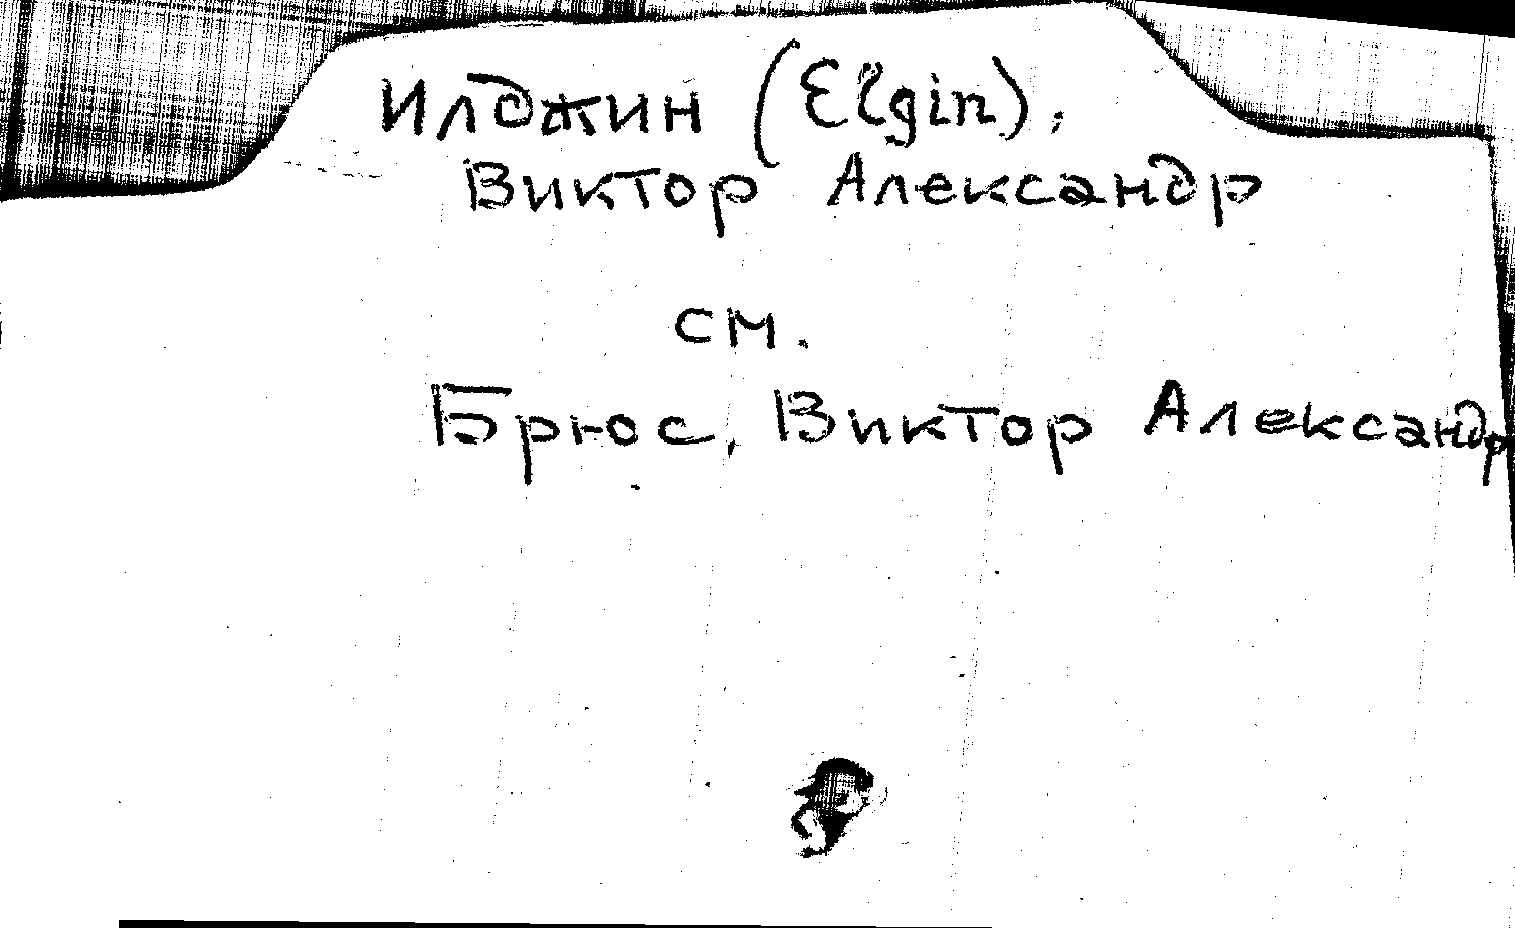 Илджин (Elgin),
Виктор Александр
см.
Брюс, Виктор Александр